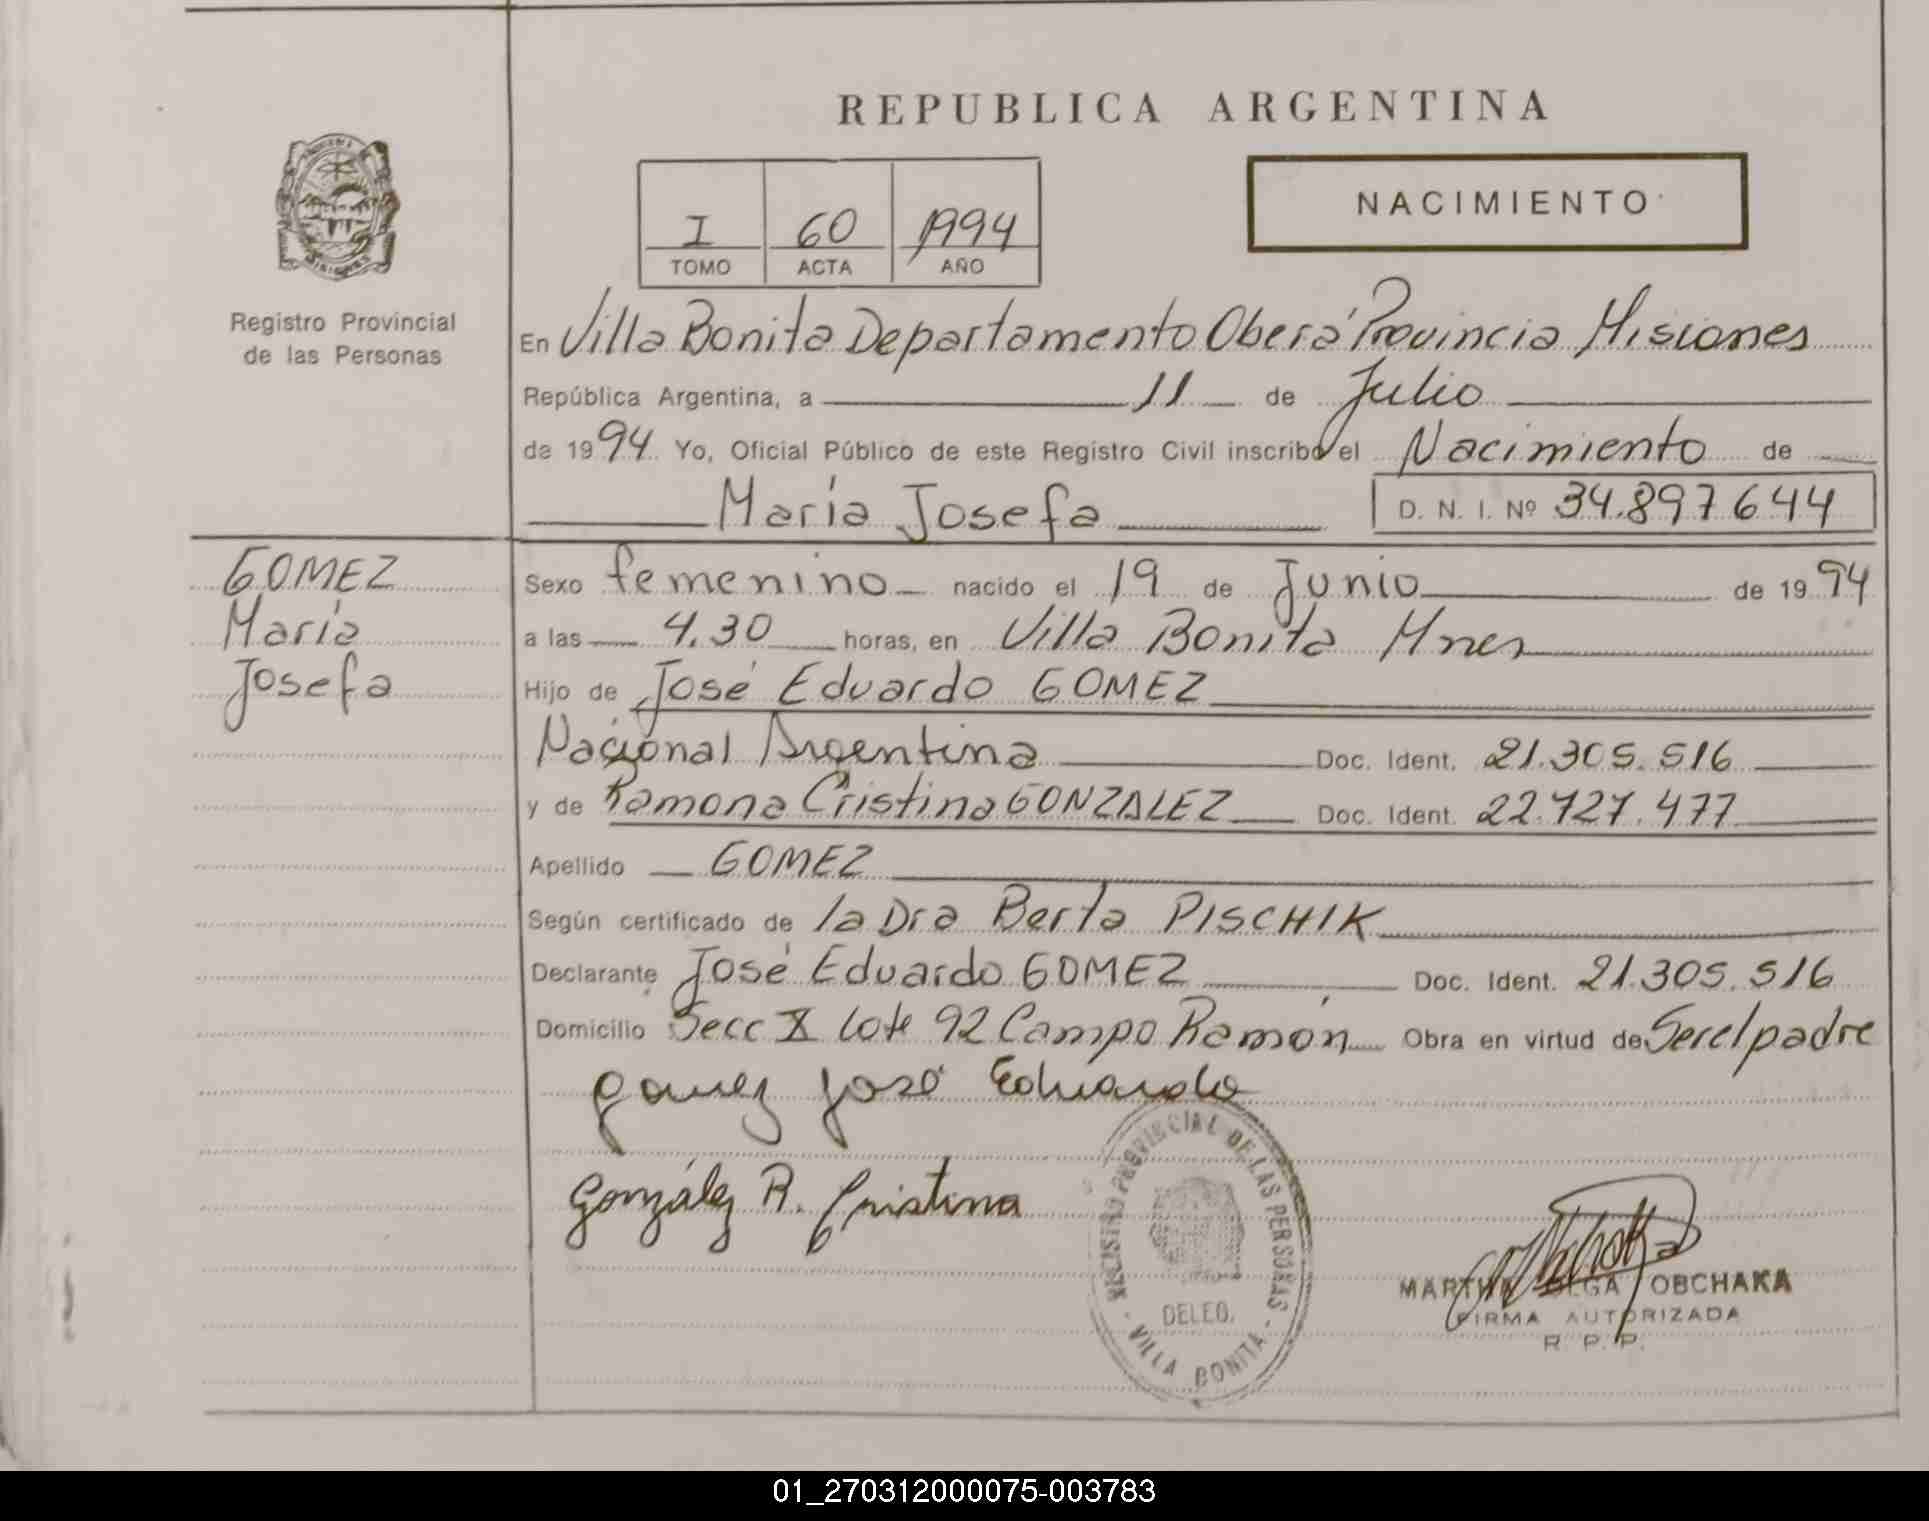 REPUBLICA ARGENTINA
NACIMIENTO
I 60 1994
TOMO ACTA AÑO
MISIONES
Registro Provincial
de las Personas
En Villa Bonita Departamento Oberá Provincia Misiones
República Argentina, a 11 de Julio
de 1994 Yo, Oficial Público de este Registro Civil inscribo el Nacimiento de
María Josefa D. N. I. Nº 34.897644
GOMEZ
María
Josefa
Sexo femenino nacido el 19 de Junio de 1994
a las 4.30 horas, en Villa Bonita Mnes
Hijo de José Eduardo GOMEZ
Nacional Argentina Doc. Ident. 21.305.516
y de Ramona Cristina GONZALEZ Doc. Ident. 22.727.477
Apellido GOMEZ
Según certificado de la Dra Berta PISCHIK
Declarante José Eduardo GOMEZ Doc. Ident. 21.305.516
Domicilio Secc X lote 92 Campo Ramón Obra en virtud de Ser el padre
Gomez José Eduardo
González R. Cristina
REGISTRO PROVINCIAL DE LAS PERSONAS
DELEG.
- VILLA BONITA -
MARTHA OLGA OBCHAKA
FIRMA AUTORIZADA
R. P. P.
01_270312000075-003783